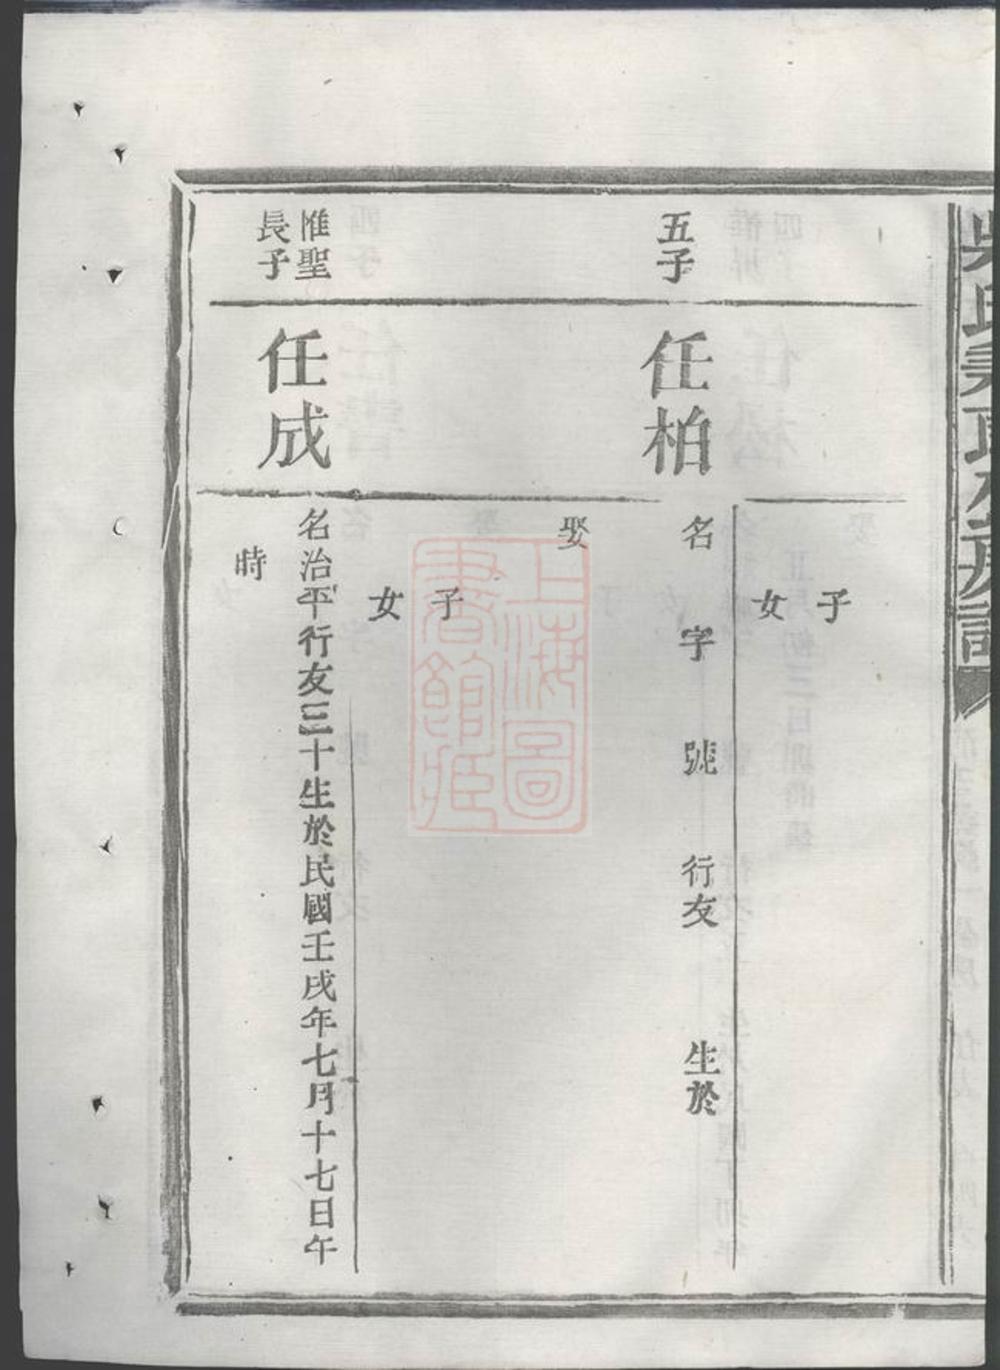 子
女
五子
任柏
名 字 號 行友 生於
娶
子
女
惟聖
長子
任成
名治平行友三十生於民國壬戌年七月十七日午
時
上海圖
書館藏